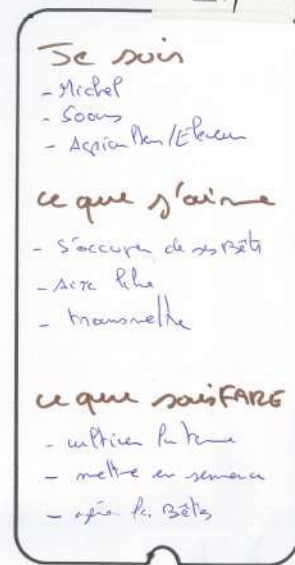 Je suis
- Michel
- 50ans
- Agriculteur/Eleveur
ce que j'aime
- S'occuper de ses Bêtes
- être libre
- transmettre
ce que sais FARE
- cultiver la terre
- mettre en semence
- les Bêtes